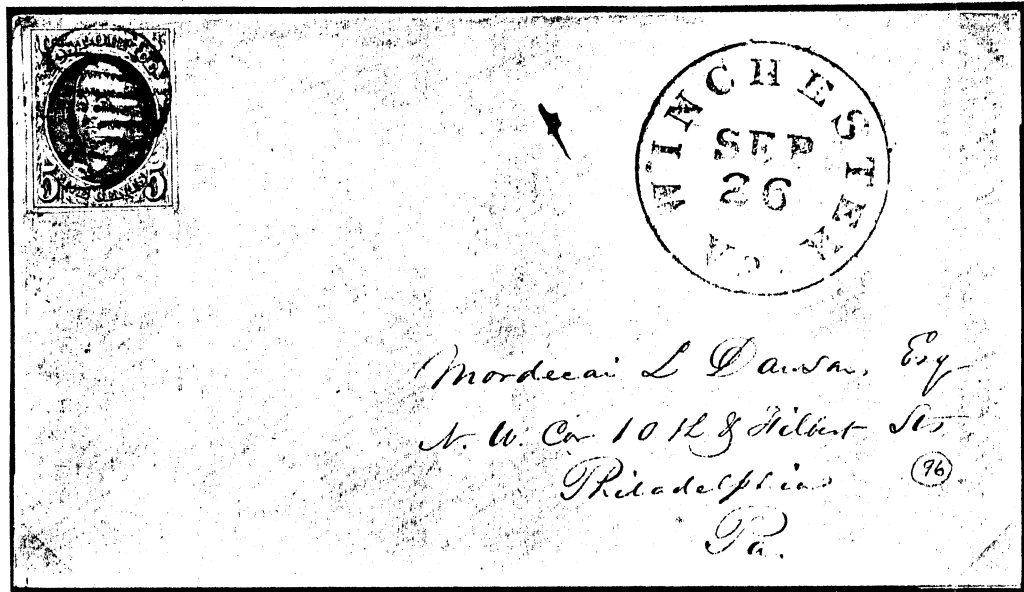 5 5
WINCHESTER
SEP
26
Va
Mordecai L Dawson, Esq
N. W. Cor 10th & Filbert Sts
Philadelphia
96
Pa.